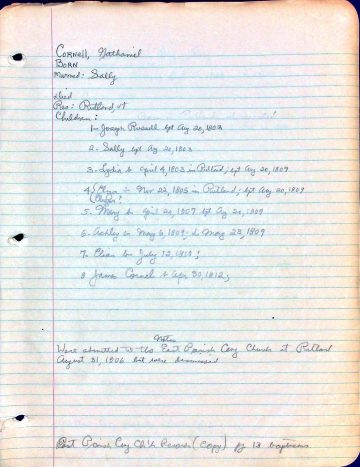 CORNELL, Nathaniel
BORN
Married: Sally
Died
Res: Rutland, Vt
Children:
1- Joseph Russell bpt Aug 20, 1803
2. Sally bpt Aug 20, 1803
3. Lydia b April 4, 1803 in Rutland; bpt Aug 20, 1809
4 b Nov 22, 1805 in Rutland; bpt Aug 20, 1809
5. Mary b April 20, 1807 bpt Aug 20, 1809
6- Ashley b May 6, 1809; d May 23, 1809
7- b July 12, 1810;
8 James Cornel b Apr 30, 1812;
Notes
Were admitted to the East Parish Cong Church at Rutland
August 31, 1806 but were dismissed
East Parish Cong Ch Records (copy) pg 13 baptisms